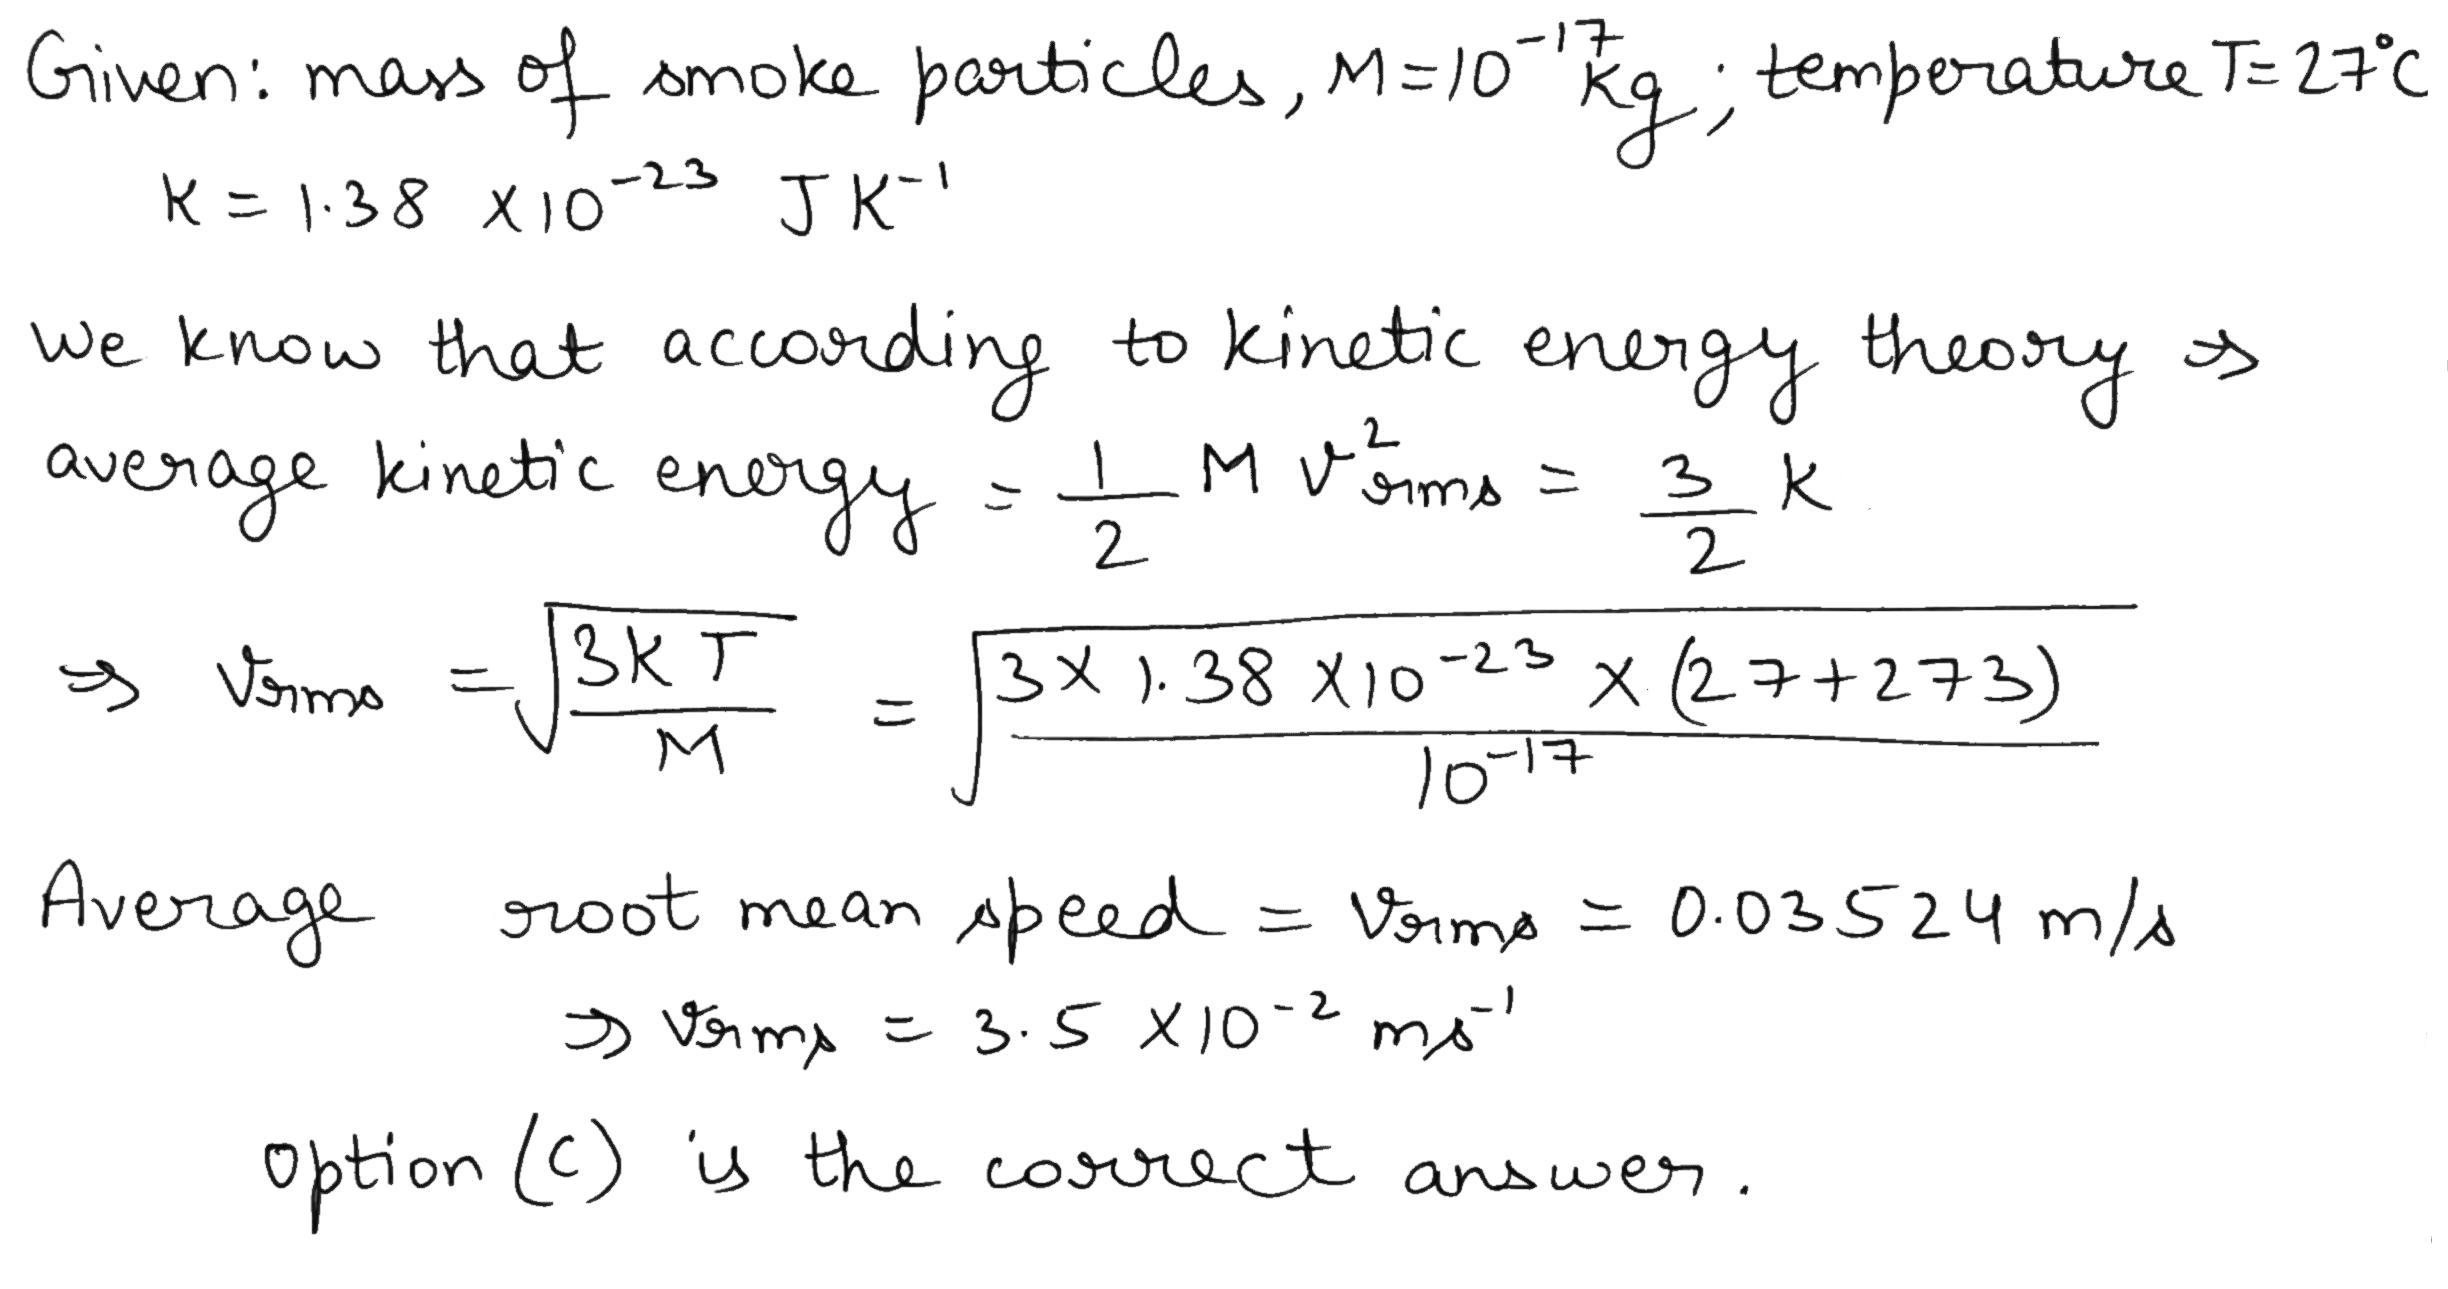 Given: mass of smoke particles, M=10⁻¹⁷ kg; temperature T=27°C
K = 1.38 ×10⁻²³ JK⁻¹
We know that according to kinetic energy theory ⇒
average kinetic energy = 1/2 M V²rms = 3/2 K
⇒ Vrms = √(3KT/M) = √(3×1.38×10⁻²³ × (27+273)/10⁻¹⁷)
Average root mean speed = Vrms = 0.03524 m/s
⇒ Vrms = 3.5 ×10⁻² ms⁻¹
option (C) is the correct answer.